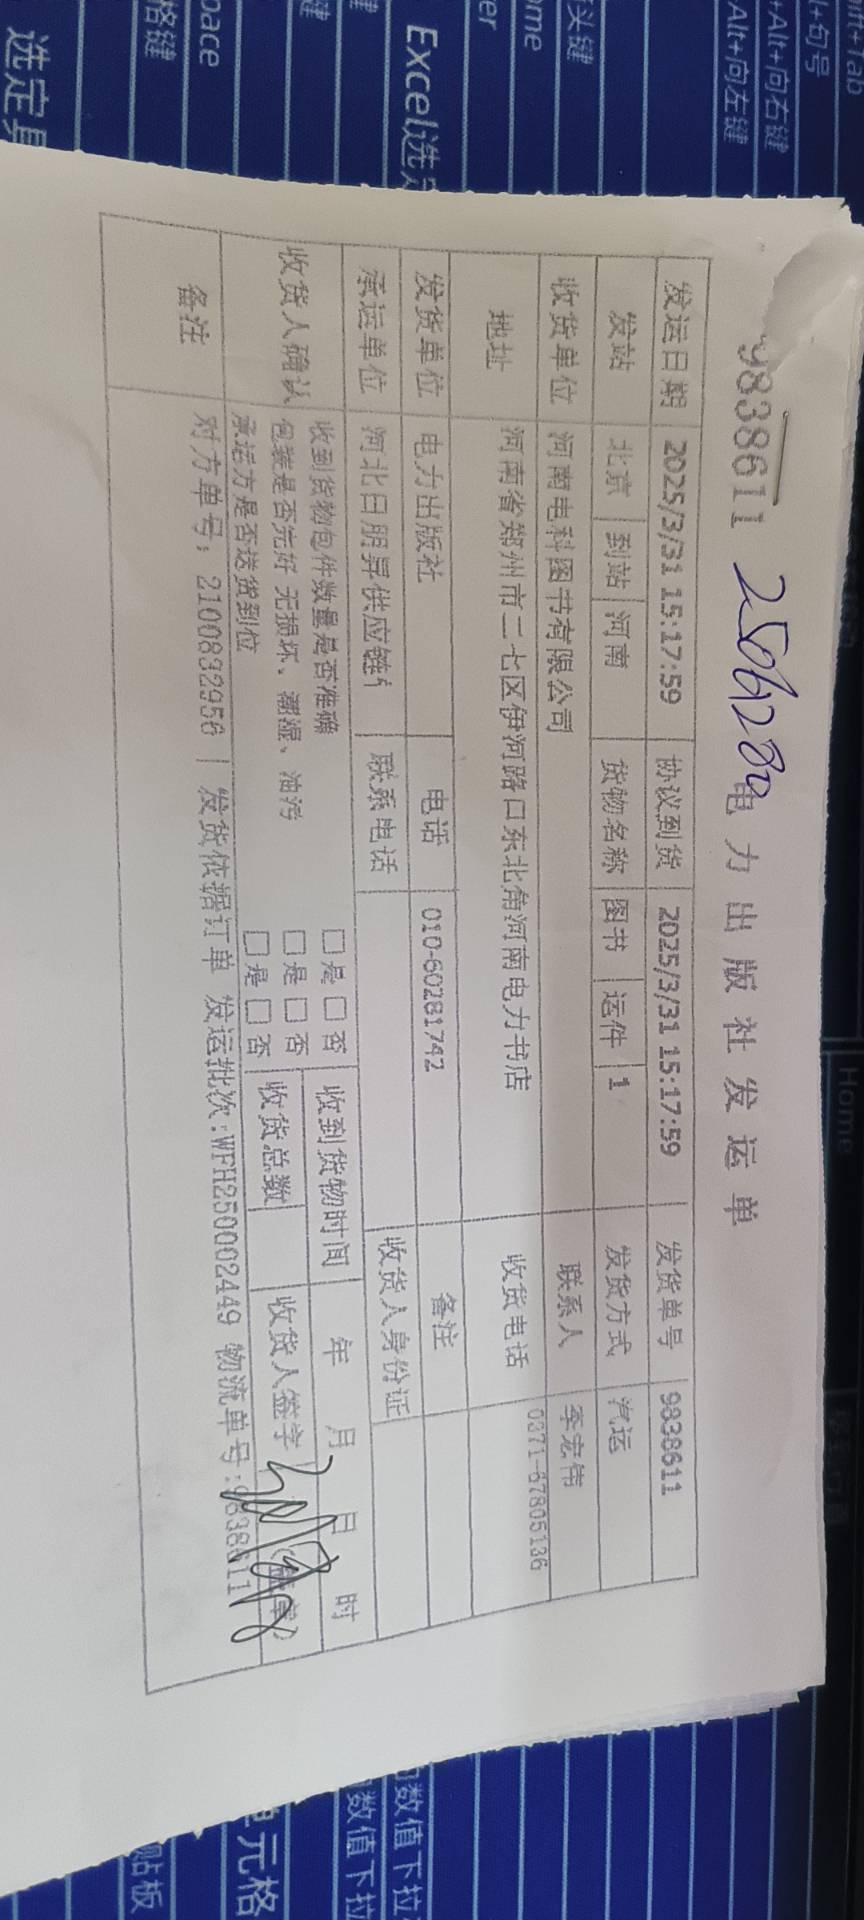 9838611 2506280 电力出版社发运单
发运日期 2025/3/31 15:17:59 协议到货 2025/3/31 15:17:59 发货单号 9838611
发站 北京 到站 河南 货物名称 图书 运件 1 发货方式 汽运
收货单位 河南电科图书有限公司 联系人 李宏伟
地址 河南省郑州市二七区伊河路口东北角河南电力书店 收货电话 0371-67805136
发货单位 电力出版社 电话 010-60281742 备注
承运单位 河北日朋昇供应链 联系电话 收货人身份证
收货人确认
收到货物包件数量是否准确 □是 □否 收到货物时间 年 月 日 时
包装是否完好 无损坏、潮湿、油污 □是 □否 收货总数 收货人签字 (签章)
承运方是否送货到位 □是 □否
备注 对方单号:2100832956 | 发货依据订单 发运批次:WFH250002449 物流单号:9838611
Alt+Tab
Alt+向右键
Alt+向左键
Home
Excel选
pace
格键
头键
选定
数值下拉
数值下拉
单元格
贴板